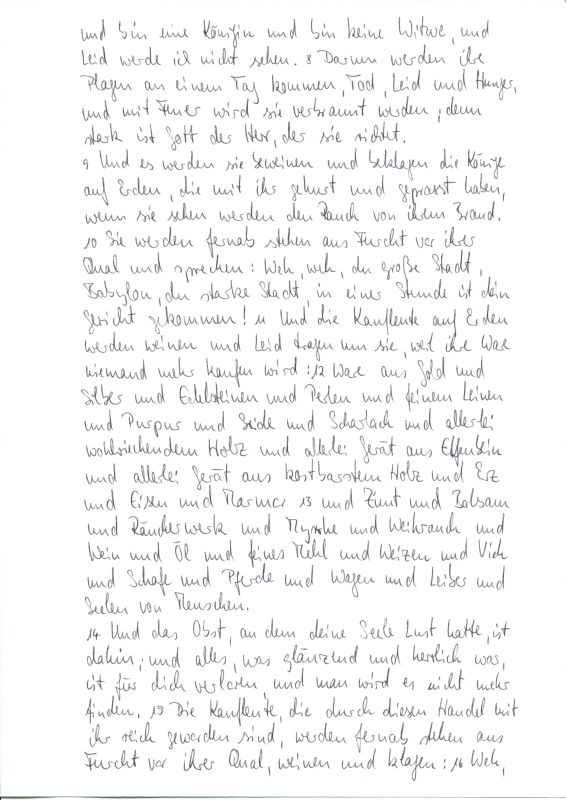 und bin eine Königin und bin keine Witwe, und
Leid werde ich nicht sehen. 8 Darum werden ihre
Plagen an einem Tag kommen, Tod, Leid und Hunger,
und mit Feuer wird sie verbrannt werden; denn
stark ist Gott der Herr, der sie richtet.
9 Und es werden sie beweinen und beklagen die Könige
auf Erden, die mit ihr gehurt und geprasst haben,
wenn sie sehen werden den Rauch von ihrem Brand.
10 Sie werden fernab stehen aus Furcht vor ihrer
Qual und sprechen: Weh, weh, du große Stadt,
Babylon, du starke Stadt, in einer Stunde ist dein
Gericht gekommen! 11 Und die Kaufleute auf Erden
werden weinen und Leid tragen um sie, weil ihre Ware
niemand mehr kaufen wird: 12 Ware aus Gold und
Silber und Edelsteinen und Perlen und feinem Leinen
und Purpur und Seide und Scharlach und allerlei
wohlriechendem Holz und allerlei Gerät aus Elfenbein
und allerlei Gerät aus kostbarstem Holz und Erz
und Eisen und Marmor 13 und Zimt und Balsam
und Räucherwerk und Myrrhe und Weihrauch und
Wein und Öl und feines Mehl und Weizen und Vieh
und Schafe und Pferde und Wagen und Leiber und
Seelen von Menschen.
14 Und das Obst, an dem deine Seele Lust hatte, ist
dahin; und alles, was glänzend und herrlich war,
ist für dich verloren, und man wird es nicht mehr
finden. 15 Die Kaufleute, die durch diesen Handel mit
ihr reich geworden sind, werden fernab stehen aus
Furcht vor ihrer Qual, weinen und klagen: 16 Weh,